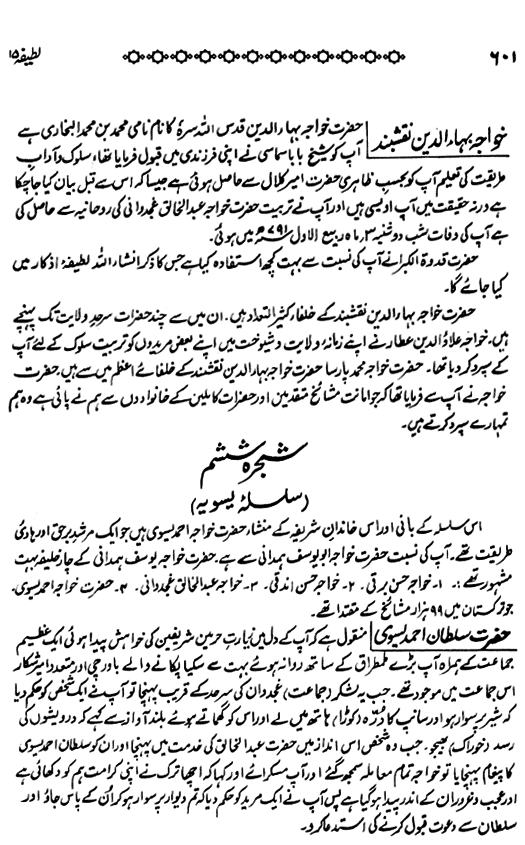 ۶۰۱
لطیفہ ۱۵
خواجہ بہاء الدین نقشبند
حضرت خواجہ بہاء الدین قدس اللہ سرہٗ کا نام نامی محمد بن محمد البخاری ہے
آپ کو شیخ بابا سماسی نے اپنی فرزندی میں قبول فرمایا تھا، سلوک و آداب
طریقت کی تعلیم آپ کو بحسب ظاہری حضرت امیر کلال سے حاصل ہوئی ہے جیسا کہ اس سے قبل بیان کیا جاچکا
ہے ورنہ حقیقت میں آپ اویسی ہیں اور آپ نے تربیت حضرت خواجہ عبدالخالق غجدوانی کی روحانیہ سے حاصل کی
ہے آپ کی وفات شب دوشنبہ ۳ ماہ ربیع الاول ۷۹۱ھ میں ہوئی۔
حضرت قدوۃ الکبرا نے آپ کی نسبت سے بہت کچھ استفادہ کیا ہے جس کا ذکر انشاء اللہ لطیفۂ اذکار میں
کیا جائے گا۔
حضرت خواجہ بہاء الدین نقشبند کے خلفاء کثیر التعداد ہیں۔ ان میں سے چند حضرات سرحد ولایت تک پہنچے
ہیں۔ خواجہ علاؤ الدین عطار نے اپنے زمانۂ ولایت و شیوخت میں اپنے بعض مریدوں کو تربیت سلوک کے لئے آپ
کے سپرد کر دیا تھا۔ حضرت خواجہ محمد پارسا حضرت خواجہ بہاء الدین نقشبند کے خلفائے اعظم میں سے ہیں۔ حضرت
خواجہ نے آپ سے فرمایا تھا کہ جو امانت مشائخ متقدمین اور حضرات کاملین کے خانوادوں سے ہم نے پائی ہے وہ ہم
تمہارے سپرد کرتے ہیں۔
شجرہ ششم
(سلسلۂ یسویہ)
اس سلسلہ کے بانی اور اس خاندان شریفہ کے منشاء حضرت خواجہ احمد یسوی ہیں جو ایک مرشد برحق اور ہادئ
طریقت تھے۔ آپ کی نسبت حضرت خواجہ ابو یوسف ہمدانی سے ہے۔ حضرت خواجہ یوسف ہمدانی کے چار خلیفہ بہت
مشہور تھے:۔ ۱۔ خواجہ حسن برقی۔ ۲۔ خواجہ حسن اندقی۔ ۳۔ خواجہ عبدالخالق غجدوانی۔ ۴۔ حضرت خواجہ احمد یسوی۔
جو ترکستان میں ۹۹ ہزار مشائخ کے مقتدا تھے۔
حضرت سلطان احمد یسوی
منقول ہے کہ آپ کے دل میں زیارت حرمین شریفین کی خواہش پیدا ہوئی ایک عظیم
جماعت کے ہمراہ آپ بڑے طمطراق کے ساتھ روانہ ہوئے بہت سے سکپا پکانے والے باورچی اور متعدد میر شکار
اس جماعت میں موجود تھے۔ جب یہ لشکر (جماعت) غجدوان کی سرحد کے قریب پہنچا تو آپ نے ایک شخص کو حکم دیا
کہ شیر پر سوار ہو اور سانپ کا دُرّہ (کوڑا) ہاتھ میں لے اور اس کو گھماتے ہوئے بلند آواز سے کہے کہ درویشوں کی
رسد (خوراک) بھیجو۔ جب وہ شخص اس انداز میں حضرت عبدالخالق کی خدمت میں پہنچا اور ان کو سلطان احمد یسوی
کا پیغام پہنچایا تو خواجہ تمام معاملہ سمجھ گئے اور آپ مسکرائے اور کہا کہ اچھا ترک نے اپنی کرامت ہم کو دکھائی ہے
اور عجب و غرور ان کے اندر پیدا ہو گیا ہے پس آپ نے ایک مرید کو حکم دیا کہ تم دیوار پر سوار ہو کر اُن کے پاس جاؤ اور
سلطان سے دعوت قبول کرنے کی استدعا کرو۔